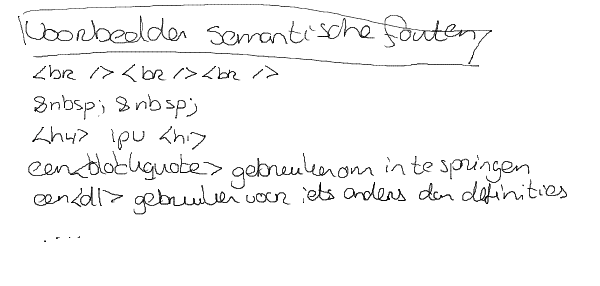 Voorbeelden semantische fouten
<br /><br /><br />
&nbsp; &nbsp;
<h4> ipv <h1>
een <blockquote> gebruiken om in te springen
een <dl> gebruiken voor iets anders dan definities
....